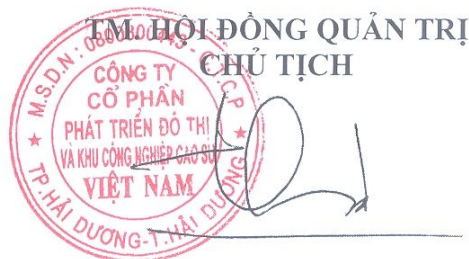 TM. HỘI ĐỒNG QUẢN TRỊ
CHỦ TỊCH
CÔNG TY
CỔ PHẦN
PHÁT TRIỂN ĐÔ THỊ
VÀ KHU CÔNG NGHIỆP CAO SU
VIỆT NAM
TP.HẢI DƯƠNG-T.HẢI DƯƠNG